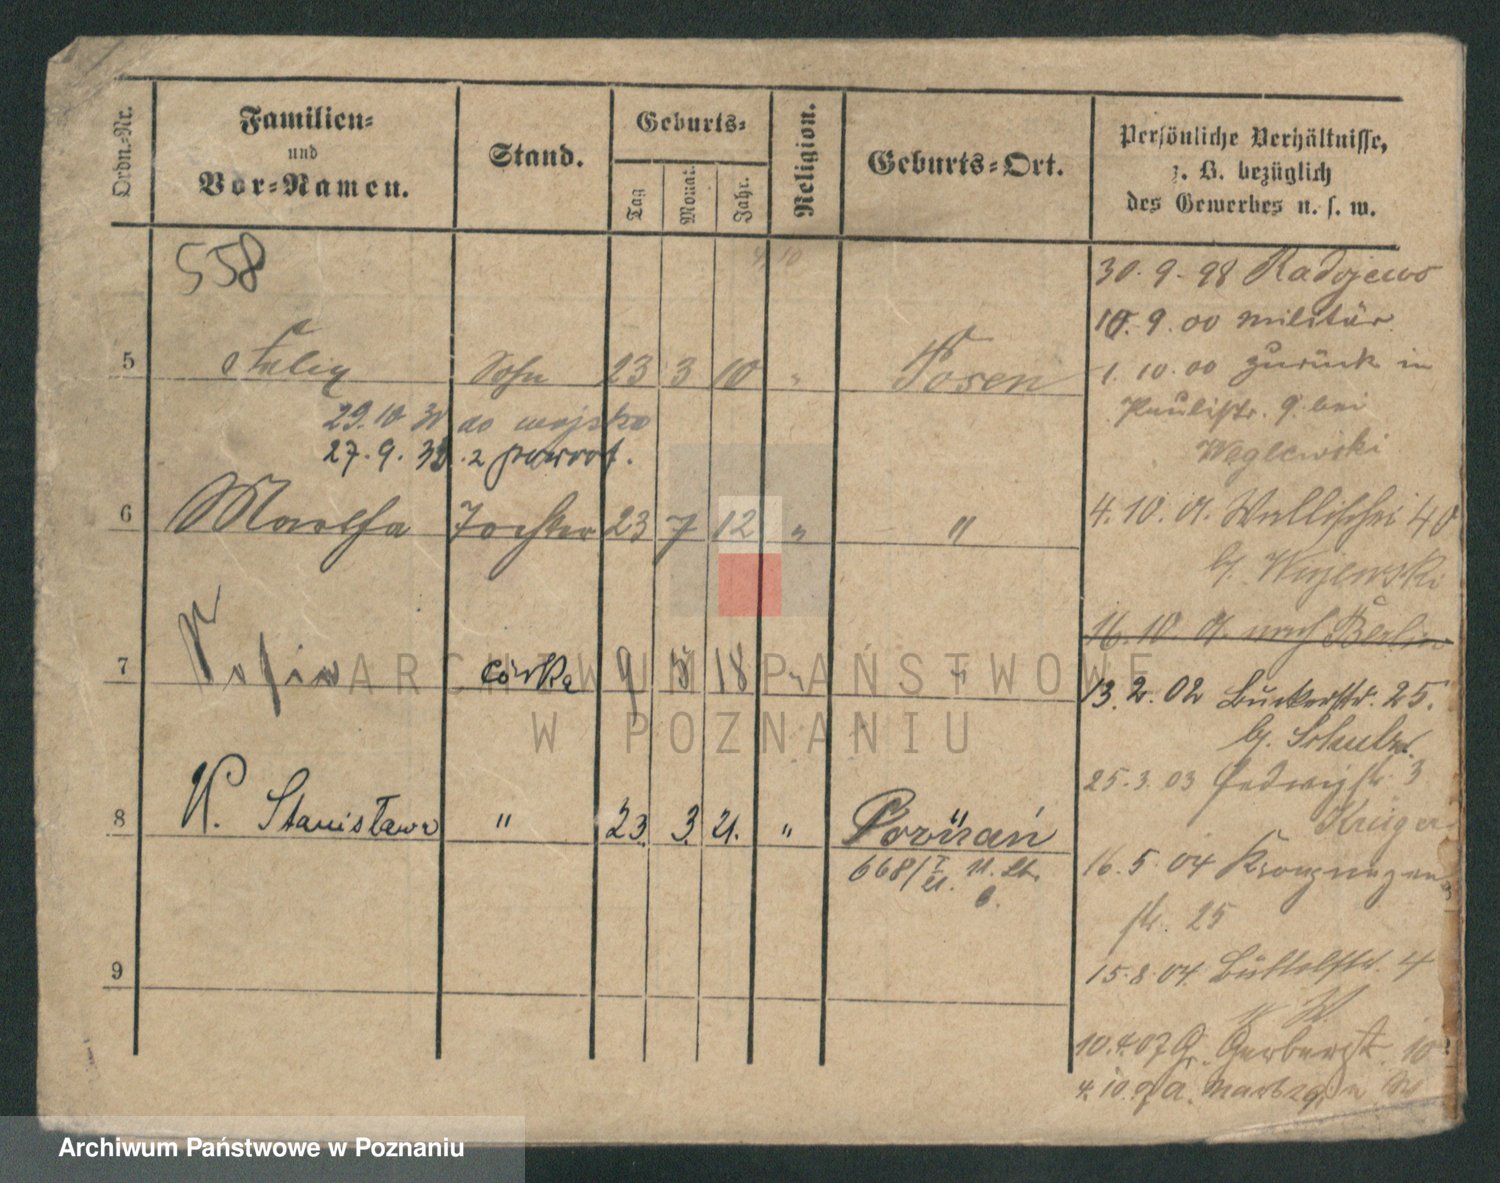 Ordn.-Nr.
Familien-
und
Vor-Namen.
Stand.
Geburts-
Tag
Monat.
Jahr.
Religion.
Geburts-Ort.
Persönliche Verhältnisse,
z. B. bezüglich
des Gewerbes u. s. w.
558
5 Felix Sohn 23 3 10 " Posen
29.10 do wojska
27.9. z powrot.
6 Martha Tochter 23 7 12 " "
7 Zofia córka 9 18 " "
8 K. Stanisława " 23. 3. 21. " Poznań
668/
9
30.9.98 Radojewo
10.9.00 Militär
1.10.00 zurück in
Paulistr. 9. bei
Weglewski
4.10.01. Wallischei 40
b/.
16.10.01. nach Berlin
13.2.02 Bäckerstr. 25.
b/. Schulz
25.3.03 Hedwigstr. 3
Krüger
16.5.04 Kronprinzen
str. 25
15.8.04. Büttelstr. 4
10.4.07 G. Gerberstr. 10
4.10.
ARCHIWUM PAŃSTWOWE
W POZNANIU
Archiwum Państwowe w Poznaniu